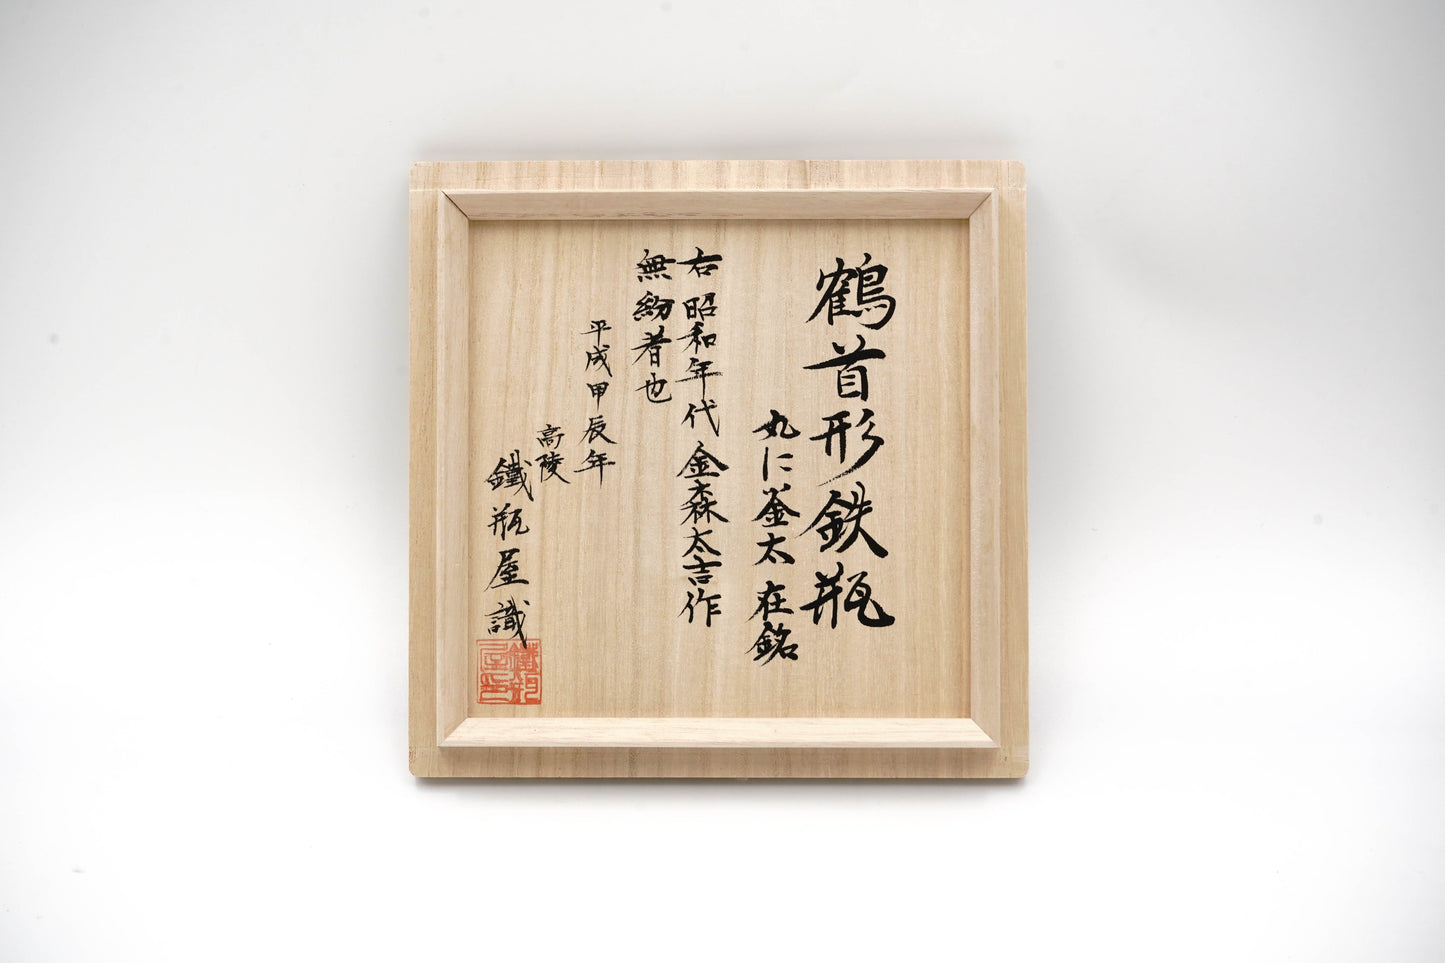 鶴首形鉄瓶
丸に釜太在銘
右昭和年代金森太吉作
無紛者也
平成甲辰年
高陵
鐵瓶屋識
鐵瓶屋印